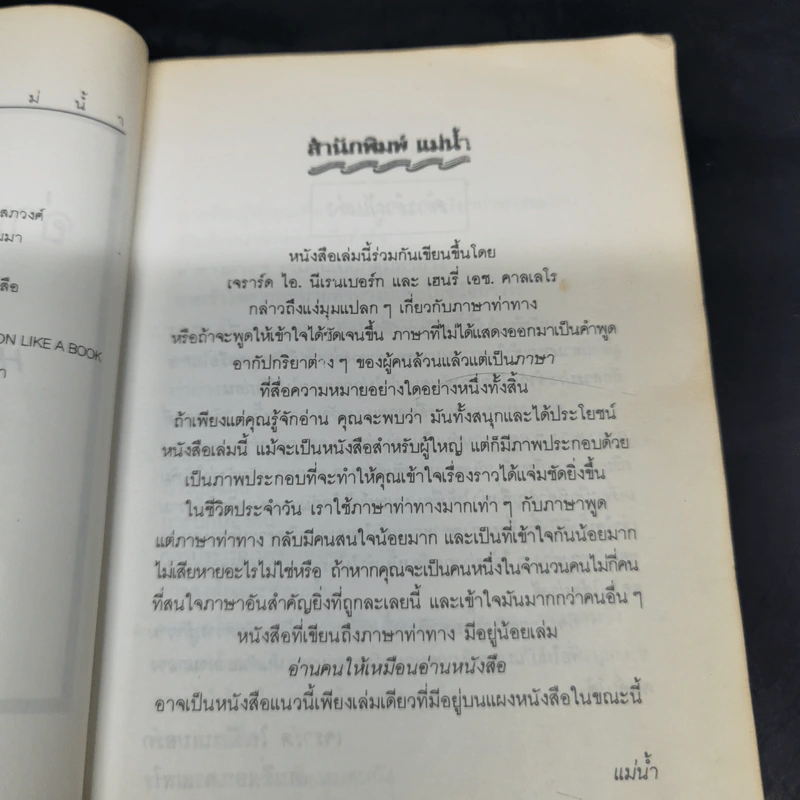 ม่ น้ำ
ลภวงศ์
มมา
สือ
ON LIKE A BOOK
สำนักพิมพ์ แม่น้ำ
หนังสือเล่มนี้ร่วมกันเขียนขึ้นโดย
เจราร์ด ไอ. นีเรนเบอร์ท และ เฮนรี่ เอช. คาลเลโร
กล่าวถึงแง่มุมแปลก ๆ เกี่ยวกับภาษาท่าทาง
หรือถ้าจะพูดให้เข้าใจได้ชัดเจนขึ้น ภาษาที่ไม่ได้แสดงออกมาเป็นคำพูด
อากัปกริยาต่าง ๆ ของผู้คนล้วนแล้วแต่เป็นภาษา
ที่สื่อความหมายอย่างใดอย่างหนึ่งทั้งสิ้น
ถ้าเพียงแต่คุณรู้จักอ่าน คุณจะพบว่า มันทั้งสนุกและได้ประโยชน์
หนังสือเล่มนี้ แม้จะเป็นหนังสือสำหรับผู้ใหญ่ แต่ก็มีภาพประกอบด้วย
เป็นภาพประกอบที่จะทำให้คุณเข้าใจเรื่องราวได้แจ่มชัดยิ่งขึ้น
ในชีวิตประจำวัน เราใช้ภาษาท่าทางมากเท่า ๆ กับภาษาพูด
แต่ภาษาท่าทาง กลับมีคนสนใจน้อยมาก และเป็นที่เข้าใจกันน้อยมาก
ไม่เสียหายอะไรไม่ใช่หรือ ถ้าหากคุณจะเป็นคนหนึ่งในจำนวนคนไม่กี่คน
ที่สนใจภาษาอันสำคัญยิ่งที่ถูกละเลยนี้ และเข้าใจมันมากกว่าคนอื่น ๆ
หนังสือที่เขียนถึงภาษาท่าทาง มีอยู่น้อยเล่ม
อ่านคนให้เหมือนอ่านหนังสือ
อาจเป็นหนังสือแนวนี้เพียงเล่มเดียวที่มีอยู่บนแผงหนังสือในขณะนี้
แม่น้ำ